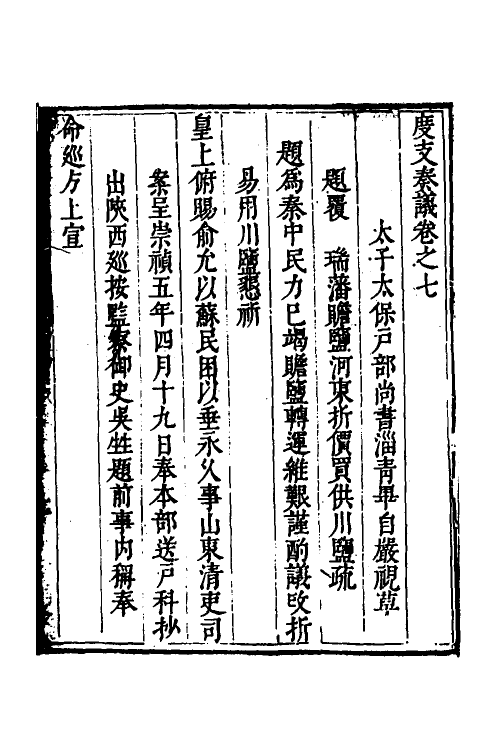 度支奏議卷之七
太子太保戸部尚書淄青畢自嚴視草
題覆　瑞藩贍鹽河東折價買供川鹽疏
題爲秦中民力已竭贍鹽轉運維艱謹酌議改折
易用川鹽懇祈
皇上俯賜俞允以蘇民困以垂永久事山東清吏司
案呈崇禎五年四月十九日奉本部送戸科抄
出陝西巡按監察御史吳甡題前事內稱奉
命巡方上宣